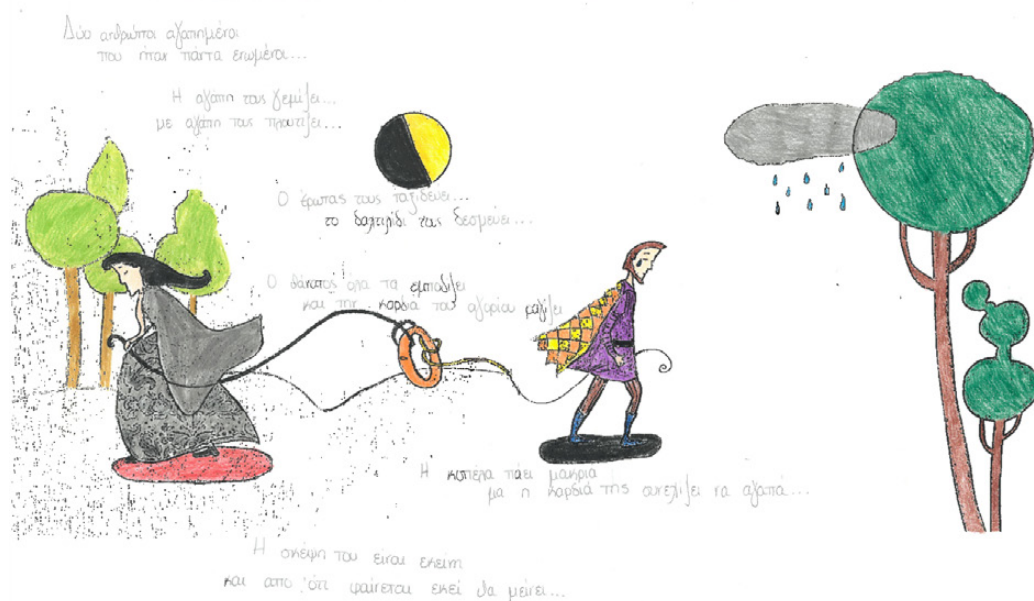 Δύο άνθρωποι αγαπημένοι
που ήταν πάντα ενωμένοι...
Η αγάπη τους γεμίζει...
με αγάπη τους πλουτίζει...
Ο έρωτας τους ταξιδεύει...
το δαχτυλίδι τους δεσμεύει...
Ο θάνατος όλα τα εμποδίζει
και την καρδιά του αγοριού ραγίζει
Η κοπέλα πάει μακριά
μα η καρδιά της συνεχίζει να αγαπά...
Η σκέψη του είναι εκείνη
και απο ότι φαίνεται εκεί θα μείνει...